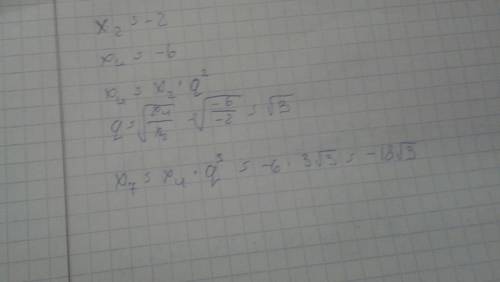 x₂ = -2
x₄ = -6
x₄ = x₂ · q²
q = √(x₄/x₂) = √(-6/-2) = √3
x₇ = x₄ · q³ = -6 · 3√3 = -18√3